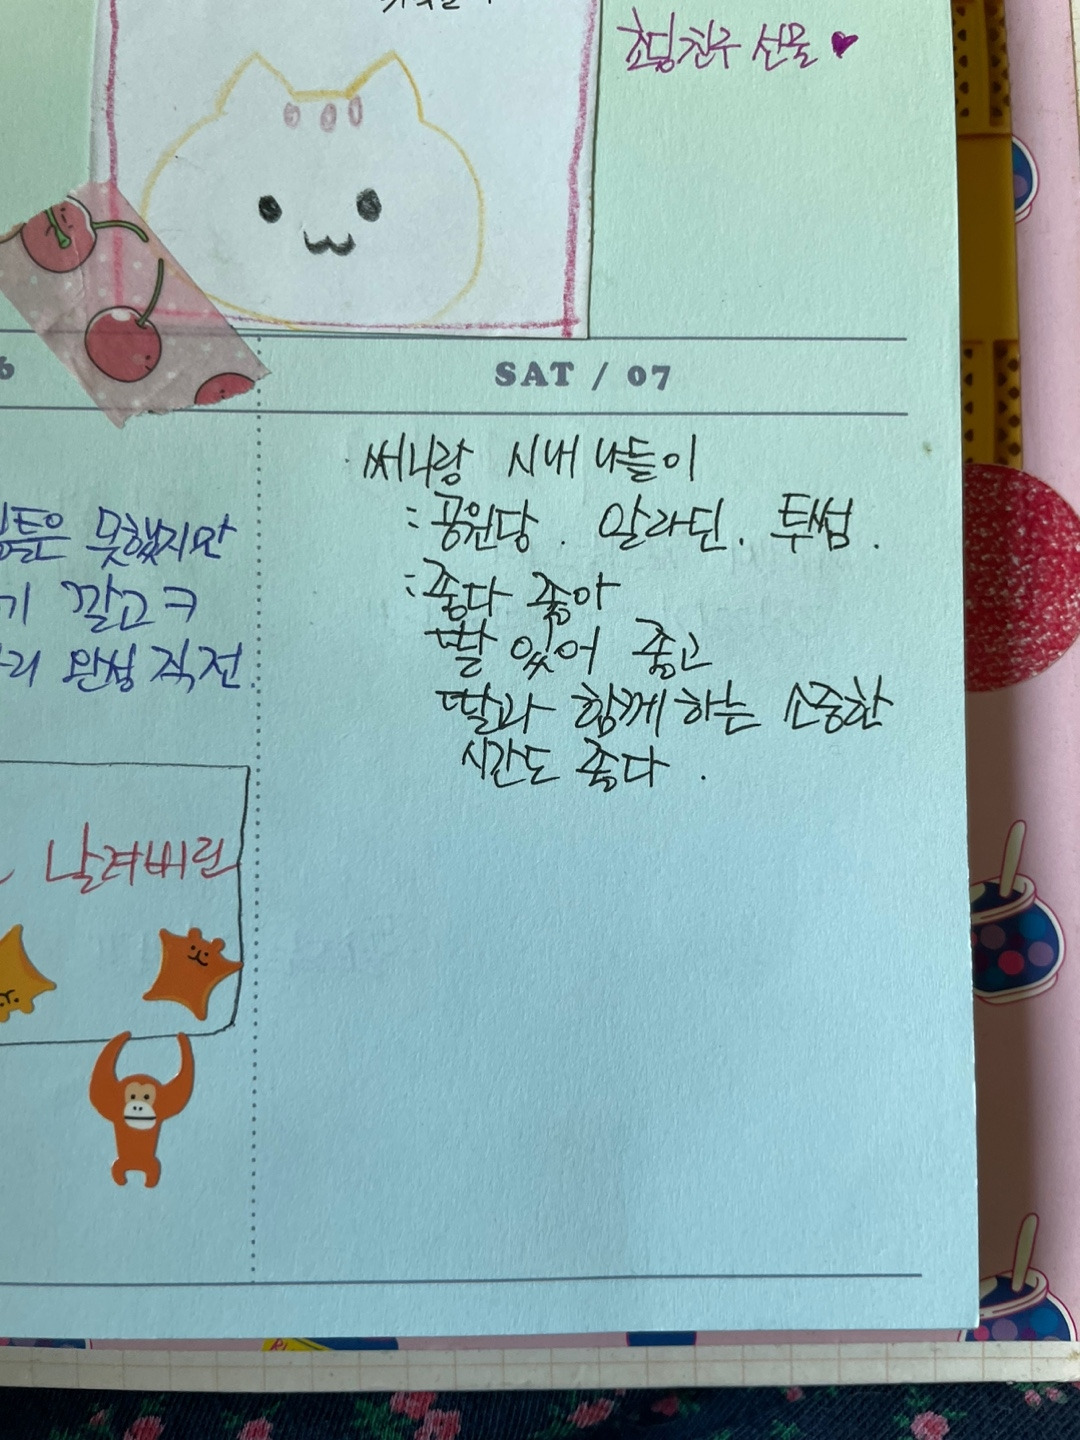 초딩친구 선물 ♥
SAT / 07
써니랑 시내 나들이
: 공원당. 알라딘. 투썸.
: 좋다 좋아
딸 있어 좋고
딸과 함께 하는 소중한
시간도 좋다.
못했지만
깔고ㅋ
완성 직전.
날려버린